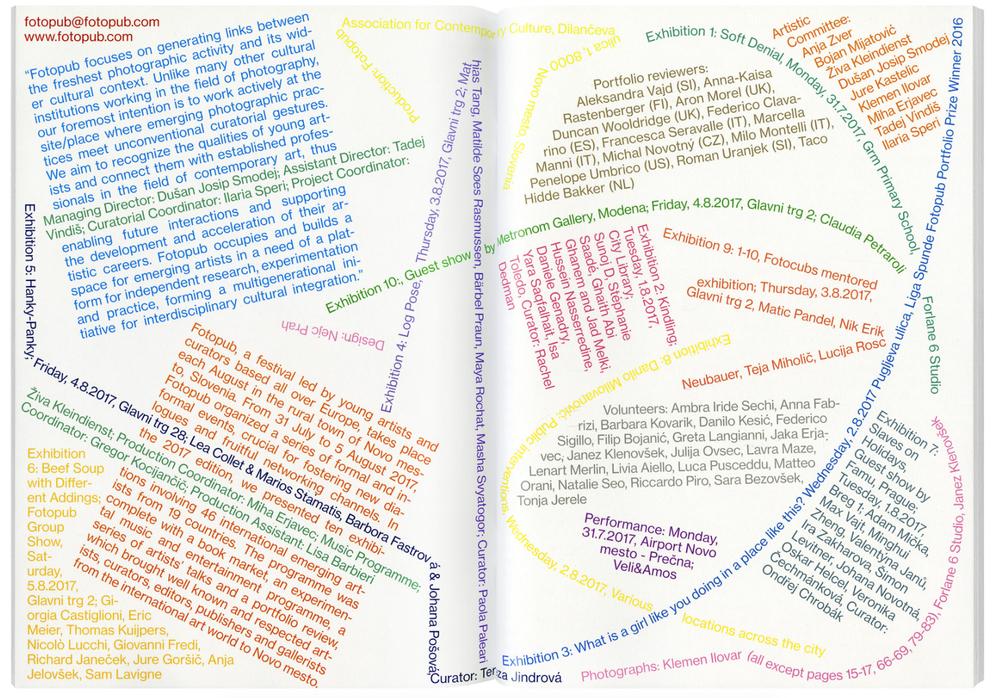 fotopub@fotopub.com
www.fotopub.com
"Fotopub focuses on generating links between
the freshest photographic activity and its wid-
er cultural context. Unlike many other cultural
institutions working in the field of photography,
our foremost intention is to work actively at the
site/place where emerging photographic prac-
tices meet unconventional curatorial gestures.
We aim to recognize the qualities of young art-
ists and connect them with established profes-
sionals in the field of contemporary art, thus
enabling future interactions and supporting
the development and acceleration of their ar-
tistic careers. Fotopub occupies and builds a
space for emerging artists in a need of a plat-
form for independent research, experimentation
and practice, forming a multigenerational ini-
tiative for interdisciplinary cultural integration."
Managing Director: Dušan Josip Smodej; Assistant Director: Tadej
Vindiš; Curatorial Coordinator: Ilaria Speri; Project Coordinator:
Živa Kleindienst; Production Coordinator: Miha Erjavec; Music Programme:
Coordinator: Gregor Kocijančič; Production Assistant: Lisa Barbieri
Production: Fotopub
Association for Contemporary Culture, Dilančeva
ulica 1, 8000
Novo mesto, Slovenia
Design: Nejc Prah
Exhibition 10:, Guest show by Metronom Gallery, Modena; Friday, 4.8.2017, Glavni trg 2; Claudia Petraroli
Exhibition 4: Log Pose, Thursday, 3.8.2017, Glavni trg 2; Mathias Tang, Matilde Søes Rasmussen, Bärbel Praun, Maya Rochat, Masha Svyatogor; Curator: Paola Paleari
Exhibition 5: Hanky-Panky; Friday, 4.8.2017, Glavni trg 28; Lea Collet & Marios Stamatis, Barbora Fastrová & Johana Pošová,
Curator: Tereza Jindrová
Fotopub, a festival led by young artists and
curators based all over Europe, takes place
each August in the rural town of Novo mes-
to, Slovenia. From 31 July to 5 August 2017,
Fotopub organized a series of formal and in-
formal events, crucial for fostering new dia-
logues and fruitful networking channels. In
the 2017 edition, we presented ten exhibi-
tions involving 46 international emerging art-
ists from 19 countries. The programme was
complete with a book market, an experimen-
tal music and entertainment programme, a
series of artists' talks and a portfolio review,
which brought well known and respected art-
ists, curators, editors, publishers and gallerists
from the international art world to Novo mesto.
Exhibition
6: Beef Soup
with Differ-
ent Addings;
Fotopub
Group
Show,
Sat-
urday,
5.8.2017,
Glavni trg 2; Gi-
orgia Castiglioni, Eric
Meier, Thomas Kuijpers,
Nicolò Lucchi, Giovanni Fredi,
Richard Janeček, Jure Goršič, Anja
Jelovšek, Sam Lavigne
Portfolio reviewers:
Aleksandra Vajd (SI), Anna-Kaisa
Rastenberger (FI), Aron Morel (UK),
Duncan Wooldridge (UK), Federico Clava-
rino (ES), Francesca Seravalle (IT), Marcella
Manni (IT), Michal Novotný (CZ), Milo Montelli (IT),
Penelope Umbrico (US), Roman Uranjek (SI), Taco
Hidde Bakker (NL)
Exhibition 1: Soft Denial, Monday, 31.7.2017, Grm Primary School,
Forlane 6 Studio
Artistic
Committee:
Anja Zver
Bojan Mijatović
Živa Kleindienst
Dušan Josip Smodej
Jure Kastelic
Klemen Ilovar
Miha Erjavec
Tadej Vindiš
Ilaria Speri
Exhibition 2: Kindling;
Tuesday, 1.8.2017,
City Library;
Sunoj D, Stéphanie
Saadé, Ghaith Abi
Ghanem and Jad Melki,
Hussein Nasserredine,
Daniele Genadry,
Yara Saqfalhait, Isa
Toledo, Curator: Rachel
Dedman
Exhibition 9: 1-10, Fotocubs mentored
exhibition; Thursday, 3.8.2017,
Glavni trg 2, Matic Pandel, Nik Erik
Neubauer, Teja Miholič, Lucija Rosc
Exhibition 8: Danilo Milovanović: Public Interventions, Wednesday, 2.8.2017, Various
locations across the city
Volunteers: Ambra Iride Sechi, Anna Fab-
rizi, Barbara Kovarik, Danilo Kesić, Federico
Sigillo, Filip Bojanić, Greta Langianni, Jaka Erja-
vec, Janez Klenovšek, Julija Ovsec, Lavra Maze,
Lenart Merlin, Livia Aiello, Luca Pusceddu, Matteo
Orani, Natalie Seo, Riccardo Piro, Sara Bezovšek,
Tonja Jerele
Performance: Monday,
31.7.2017, Airport Novo
mesto - Prečna;
Veli&Amos
Exhibition 3: What is a girl like you doing in a place like this? Wednesday, 2.8.2017 Pugljeva ulica, Liga Spunde Fotopub Portfolio Prize Winner 2016
Exhibition 7:
Staves on
Holidays,
Guest show by
Famu, Prague;
Tuesday, 1.8.2017
Breg 1; Adam Mička,
Max Vajt, Minghui
Zheng, Valentýna Janů,
Ira Zakharova, Šimon
Levitner, Johana Novotná,
Oskar Helcel, Veronika
Čechmánková, Curator:
Ondřej Chrobák
Photographs: Klemen Ilovar (all except pages 15-17, 66-69, 79-83), Forlane 6 Studio, Janez Klenovšek